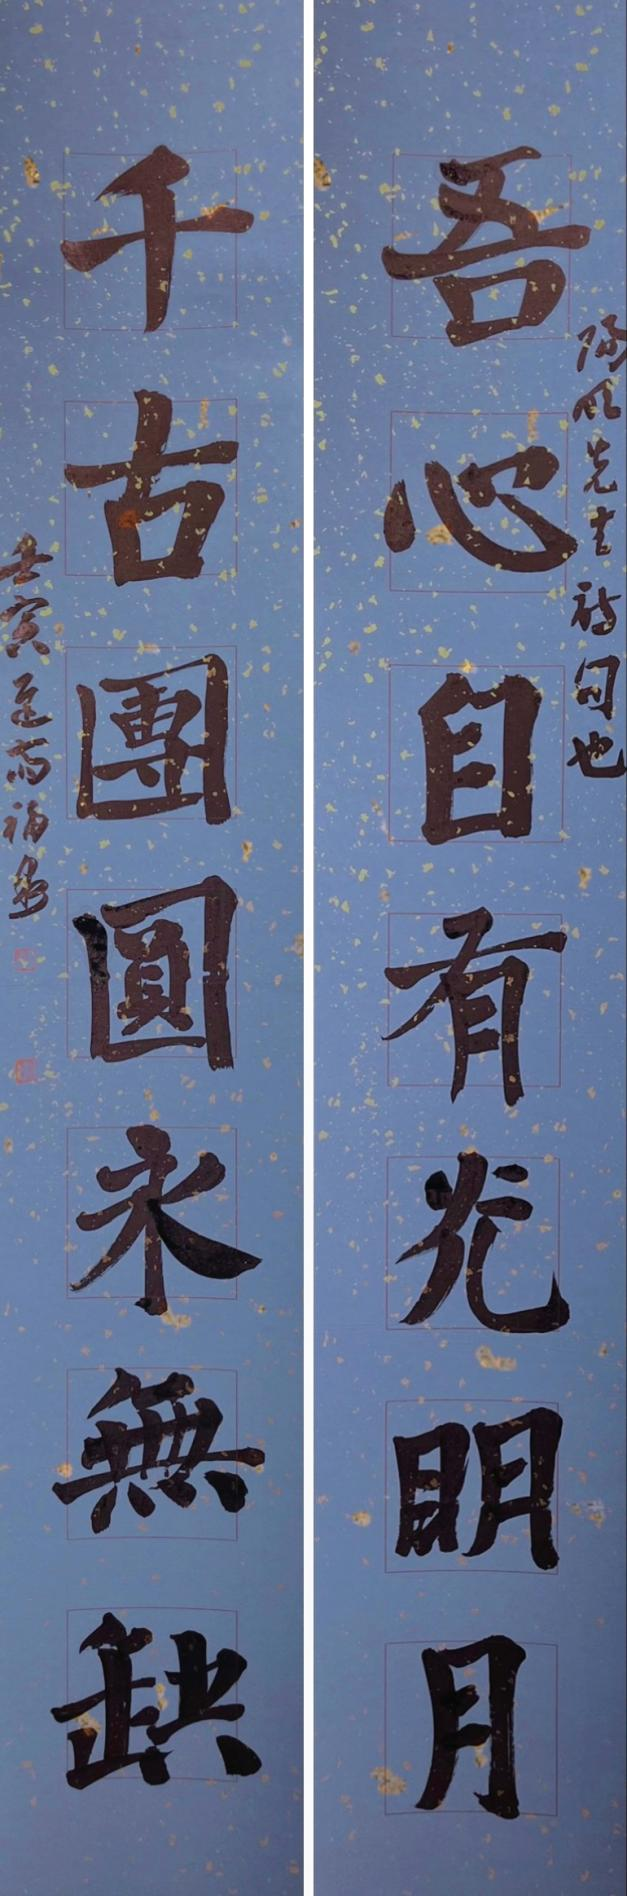 陽明先生詩句也
吾心自有光明月
千古團圓永無缺
壬寅